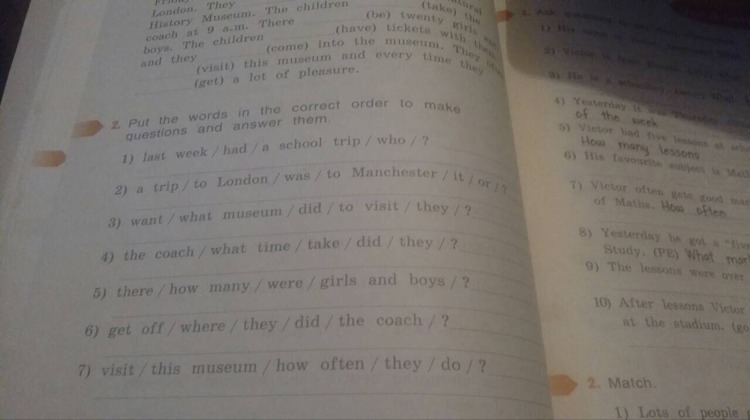 London. They
History Museum. The children (take) the
coach at 9 a.m. There (be) twenty girls and
boys. The children (have) tickets with them
and they (come) into the museum. They
(visit) this museum and every time they
(get) a lot of pleasure.
2. Put the words in the correct order to make
questions and answer them.
1) last week / had / a school trip / who / ?
2) a trip / to London / was / to Manchester / it / or / ?
3) want / what museum / did / to visit / they / ?
4) the coach / what time / take / did / they / ?
5) there / how many / were / girls and boys / ?
6) get off / where / they / did / the coach / ?
7) visit / this museum / how often / they / do / ?
4) Yesterday it was Thursday
of the week
5) Victor had five lessons at
How many lessons
6) His favourite subject is
7) Victor often gets good
of Maths. How often
8) Yesterday he got a
Study. (PE) What
9) The lessons were over
10) After lessons Victor
at the stadium.
2. Match.
1) Lots of people